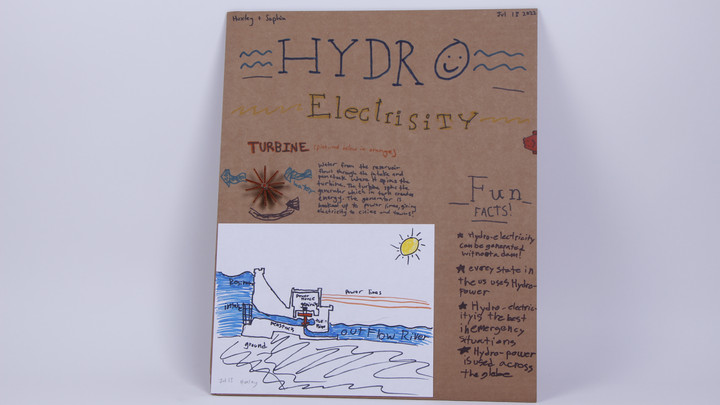 Huxley + Sophia
Jul 18 2022
HYDRO
ElectrisiTY
TURBINE
water from the reservoir
flows through the intake and
penstock where it spins the
turbine. The turbine spins the
generator which in turn creates
energy. The generator is
hooked up to power lines, giving
electricity to cities and towns!
Fun
FACTS!
Hydro-electricity
can be generated
without a dam!
every state in
the US uses Hydro-
power
Hydro-electric-
ity is the best
in emergency
situations
Hydro-power
is used across
the globe
power
house
power lines
intake
penstock
outflow River
ground